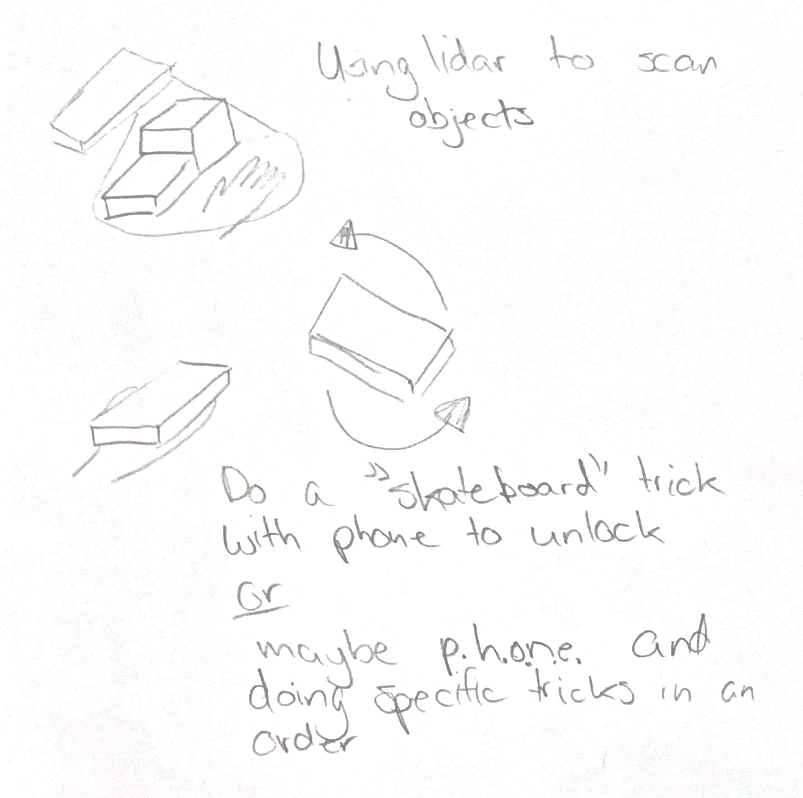 Using lidar to scan
objects
Do a "skateboard" trick
with phone to unlock
or
maybe p.h.o.n.e. and
doing specific tricks in an
order